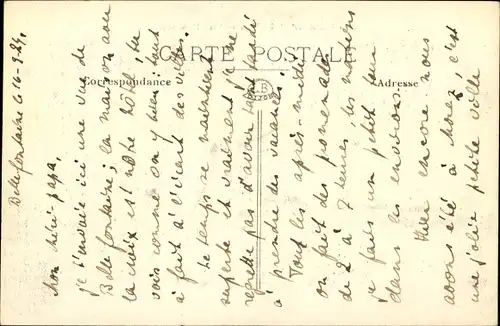 CARTE POSTALE
Correspondance
Adresse
Bellefontaine le 10-9-24.
Mon chéri papa,
je t'envoie ici une vue de
Bellefontaine; la maison avec
la croix est notre hôtel, tu
vois comme on y bien tout
à fait à l'écart des villes.
Le temps se maintient
superbe et vraiment je ne
regrette pas d'avoir tant tardé
à prendre des vacances.
Tout les après-midi
on fait des promenades
de 2 à 7 heures les matins
je fais un petit tour
dans les environs.
Hier encore nous
avons été à Morez, c'est
une jolie petite ville